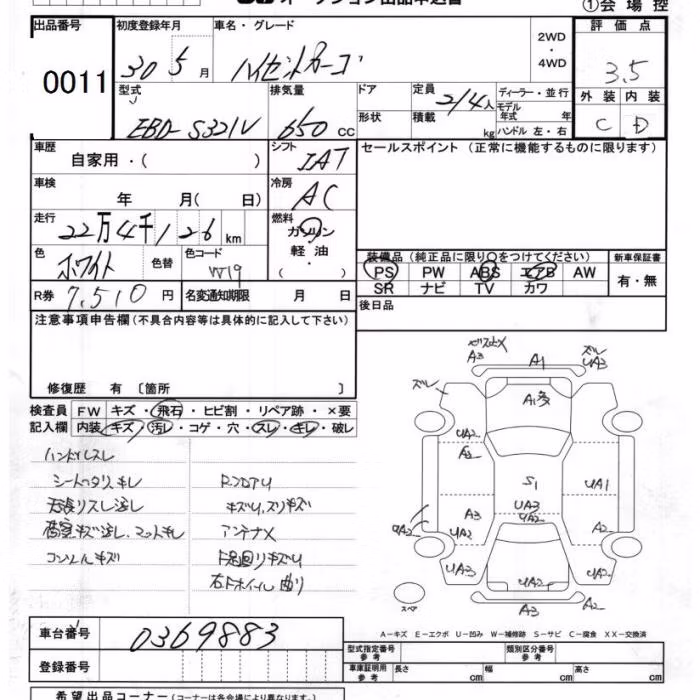 オークション出品申込書
①会場控
出品番号 初度登録年月 車名・グレード 2WD・4WD 評価点
0011 30 5月 ハイゼットカーゴ 3.5
型式 排気量 ドア 定員 2/4人 ディーラー・並行 外装 内装
EBD-S321V 650cc 形状 積載 kg モデル年式 年 ハンドル 左・右 C D
車歴 シフト セールスポイント (正常に機能するものに限ります)
自家用・( ) IAT
車検 冷房
年 月( 日) AC
走行 燃料
22万4千126km ガソリン
色 色替 色コード 軽油 装備品(純正品に限り○をつけてください) 新車保証書
ホワイト W19 ・( ) PS PW ABS エアB AW 有・無
SR ナビ TV カワ
R券 7,510円 名変通知期限 月 日 後日品
注意事項申告欄(不具合内容等は具体的に記入して下さい)
修復歴 有 〔箇所 〕
検査員 FW キズ・飛石・ヒビ割・リペア跡・×要
記入欄 内装 キズ・汚レ・コゲ・穴・スレ・キレ・破レ
ハンドルスレ
シートヘタリ キレ
天張リスレ 汚レ キズU、スリキズ
荷室キズ汚レ、マットキレ アンテナX
コンソルキズ 下廻リキズU
右Fホイール曲リ
A3 A1 ズレ UA3
ズレ
UA2 A2
S1 UA1
A3 UA3 UA2
UA2 UA2 A2
UA3 UA2 UA2
スペア A3 A2
A-キズ E-エクボ U-凹み W-補修跡 S-サビ C-腐食 XX-交換済
車台番号 0369883
型式指定番号 参考 類別区分番号 参考
登録番号
車庫証明用 参考 長さ cm 幅 cm 高さ cm
希望出品コーナー(コーナーは各会場により異なります)